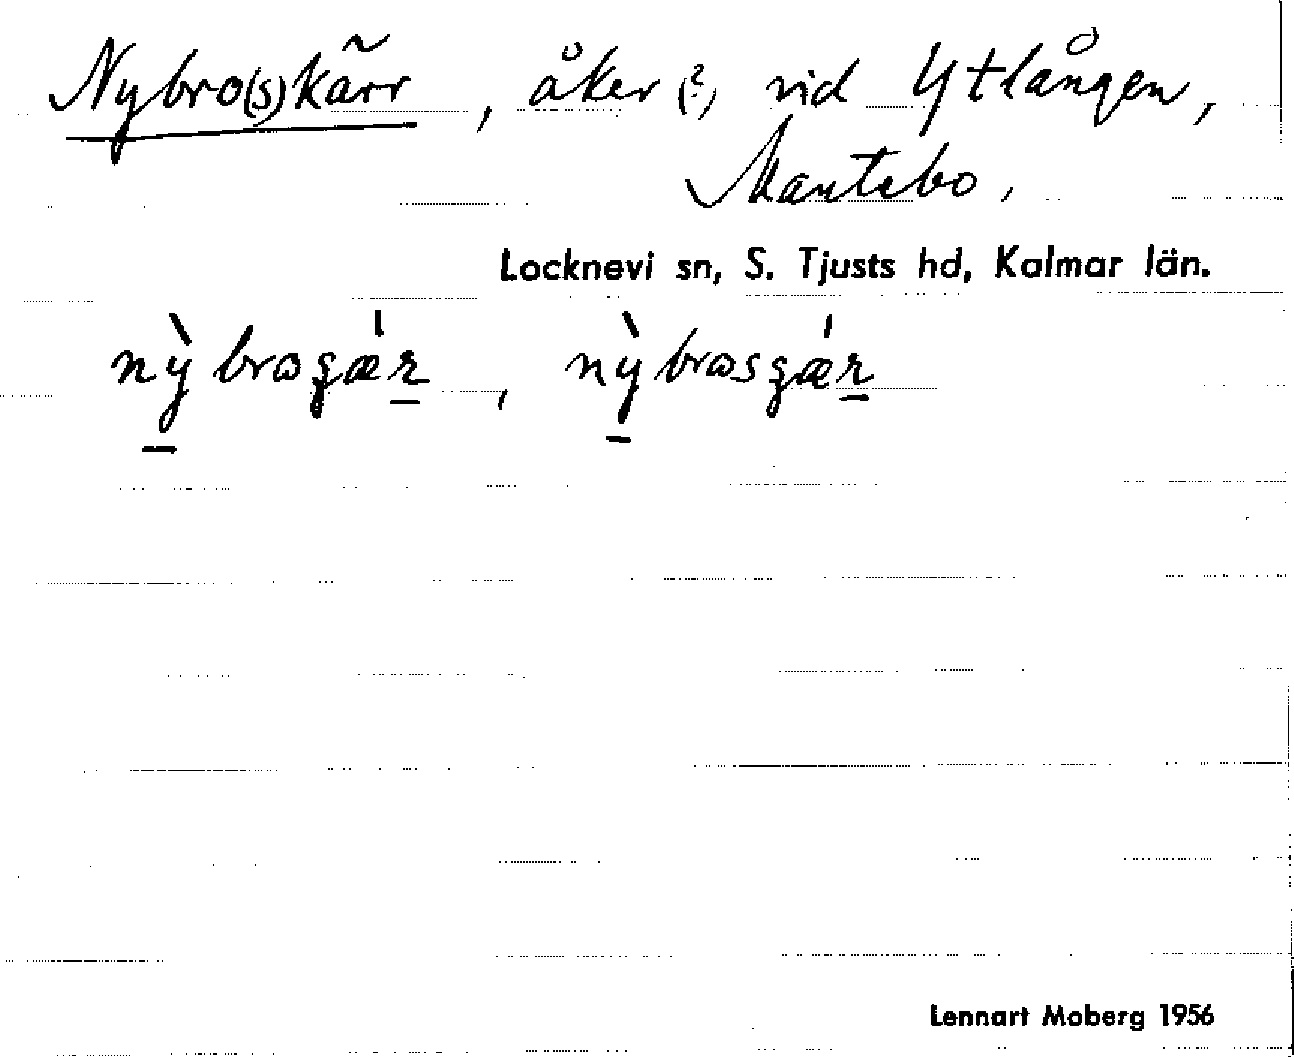 Nybro(s)kärr, åker (?) vid Ytlången,
Mantebo,
Locknevi sn, S. Tjusts hd, Kalmar län.
nỳbrogǽr, nỳbrosgǽr
Lennart Moberg 1956